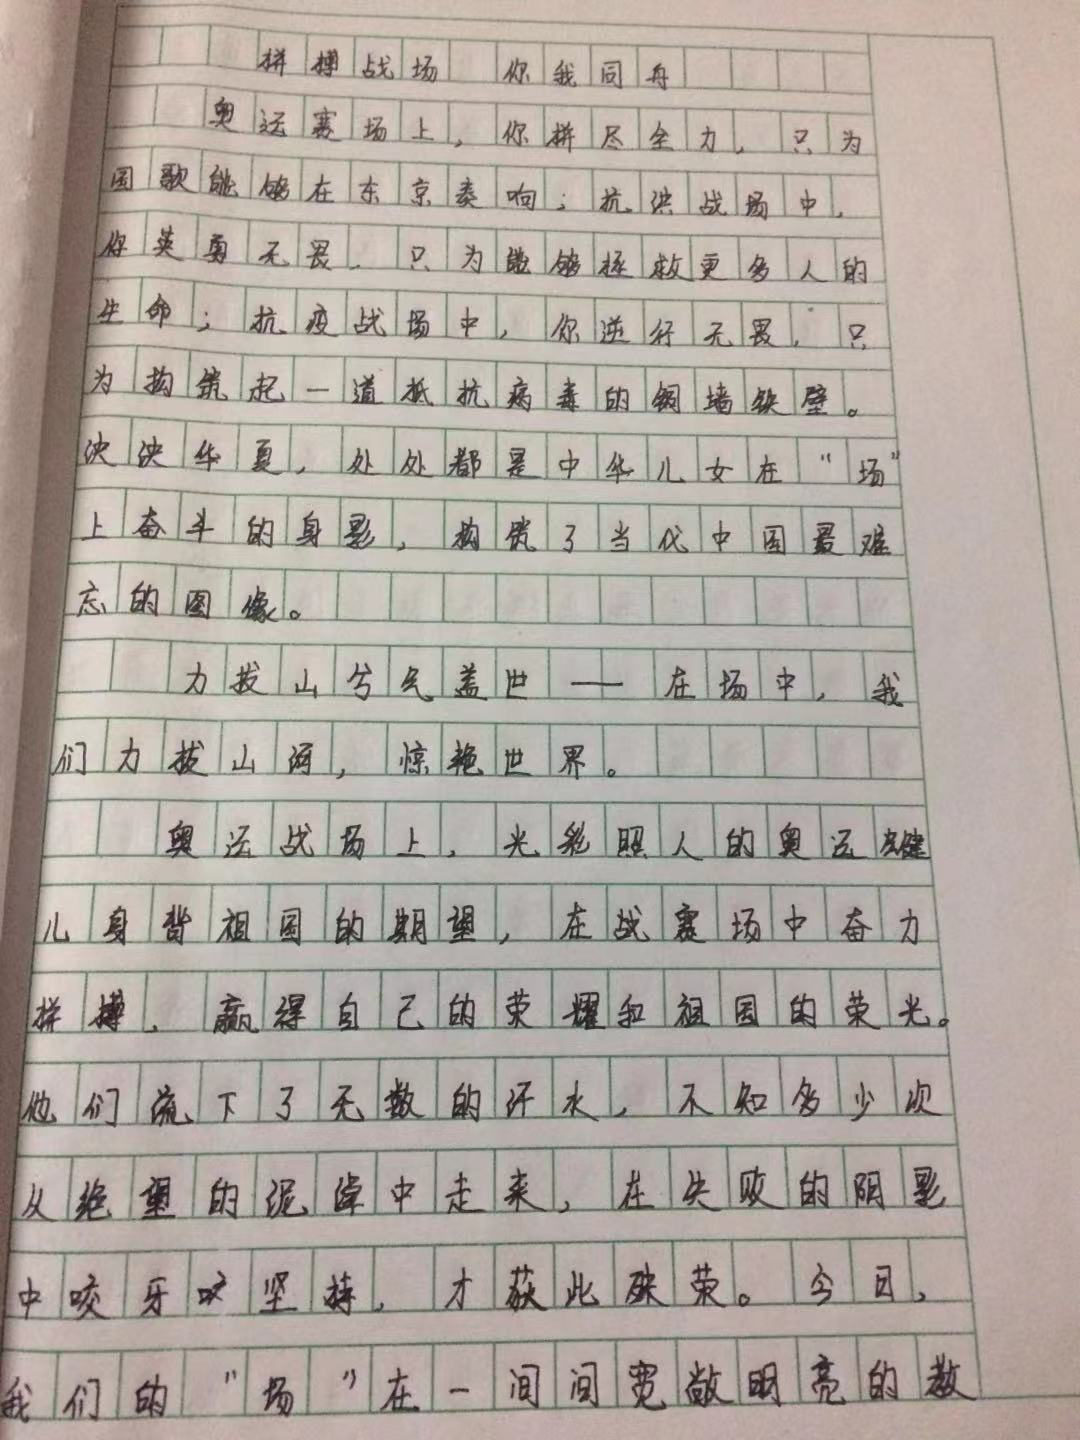 拼搏战场 你我同舟
奥运赛场上，你拼尽全力，只为
国歌能够在东京奏响；抗洪战场中，
你英勇无畏，只为能够拯救更多人的
生命；抗疫战场中，你逆行无畏，只
为构筑起一道抵抗病毒的铜墙铁壁。
泱泱华夏，处处都是中华儿女在“场”
上奋斗的身影，构筑了当代中国最难
忘的图像。
力拔山兮气盖世——在场中，我
们力拔山河，惊艳世界。
奥运战场上，光彩照人的奥运健
儿身背祖国的期望，在战赛场中奋力
拼搏，赢得自己的荣耀和祖国的荣光。
他们流下了无数的汗水，不知多少次
从绝望的泥潭中走来，在失败的阴影
中咬牙坚持，才获此殊荣。今日，
我们的“场”在一间间宽敞明亮的教